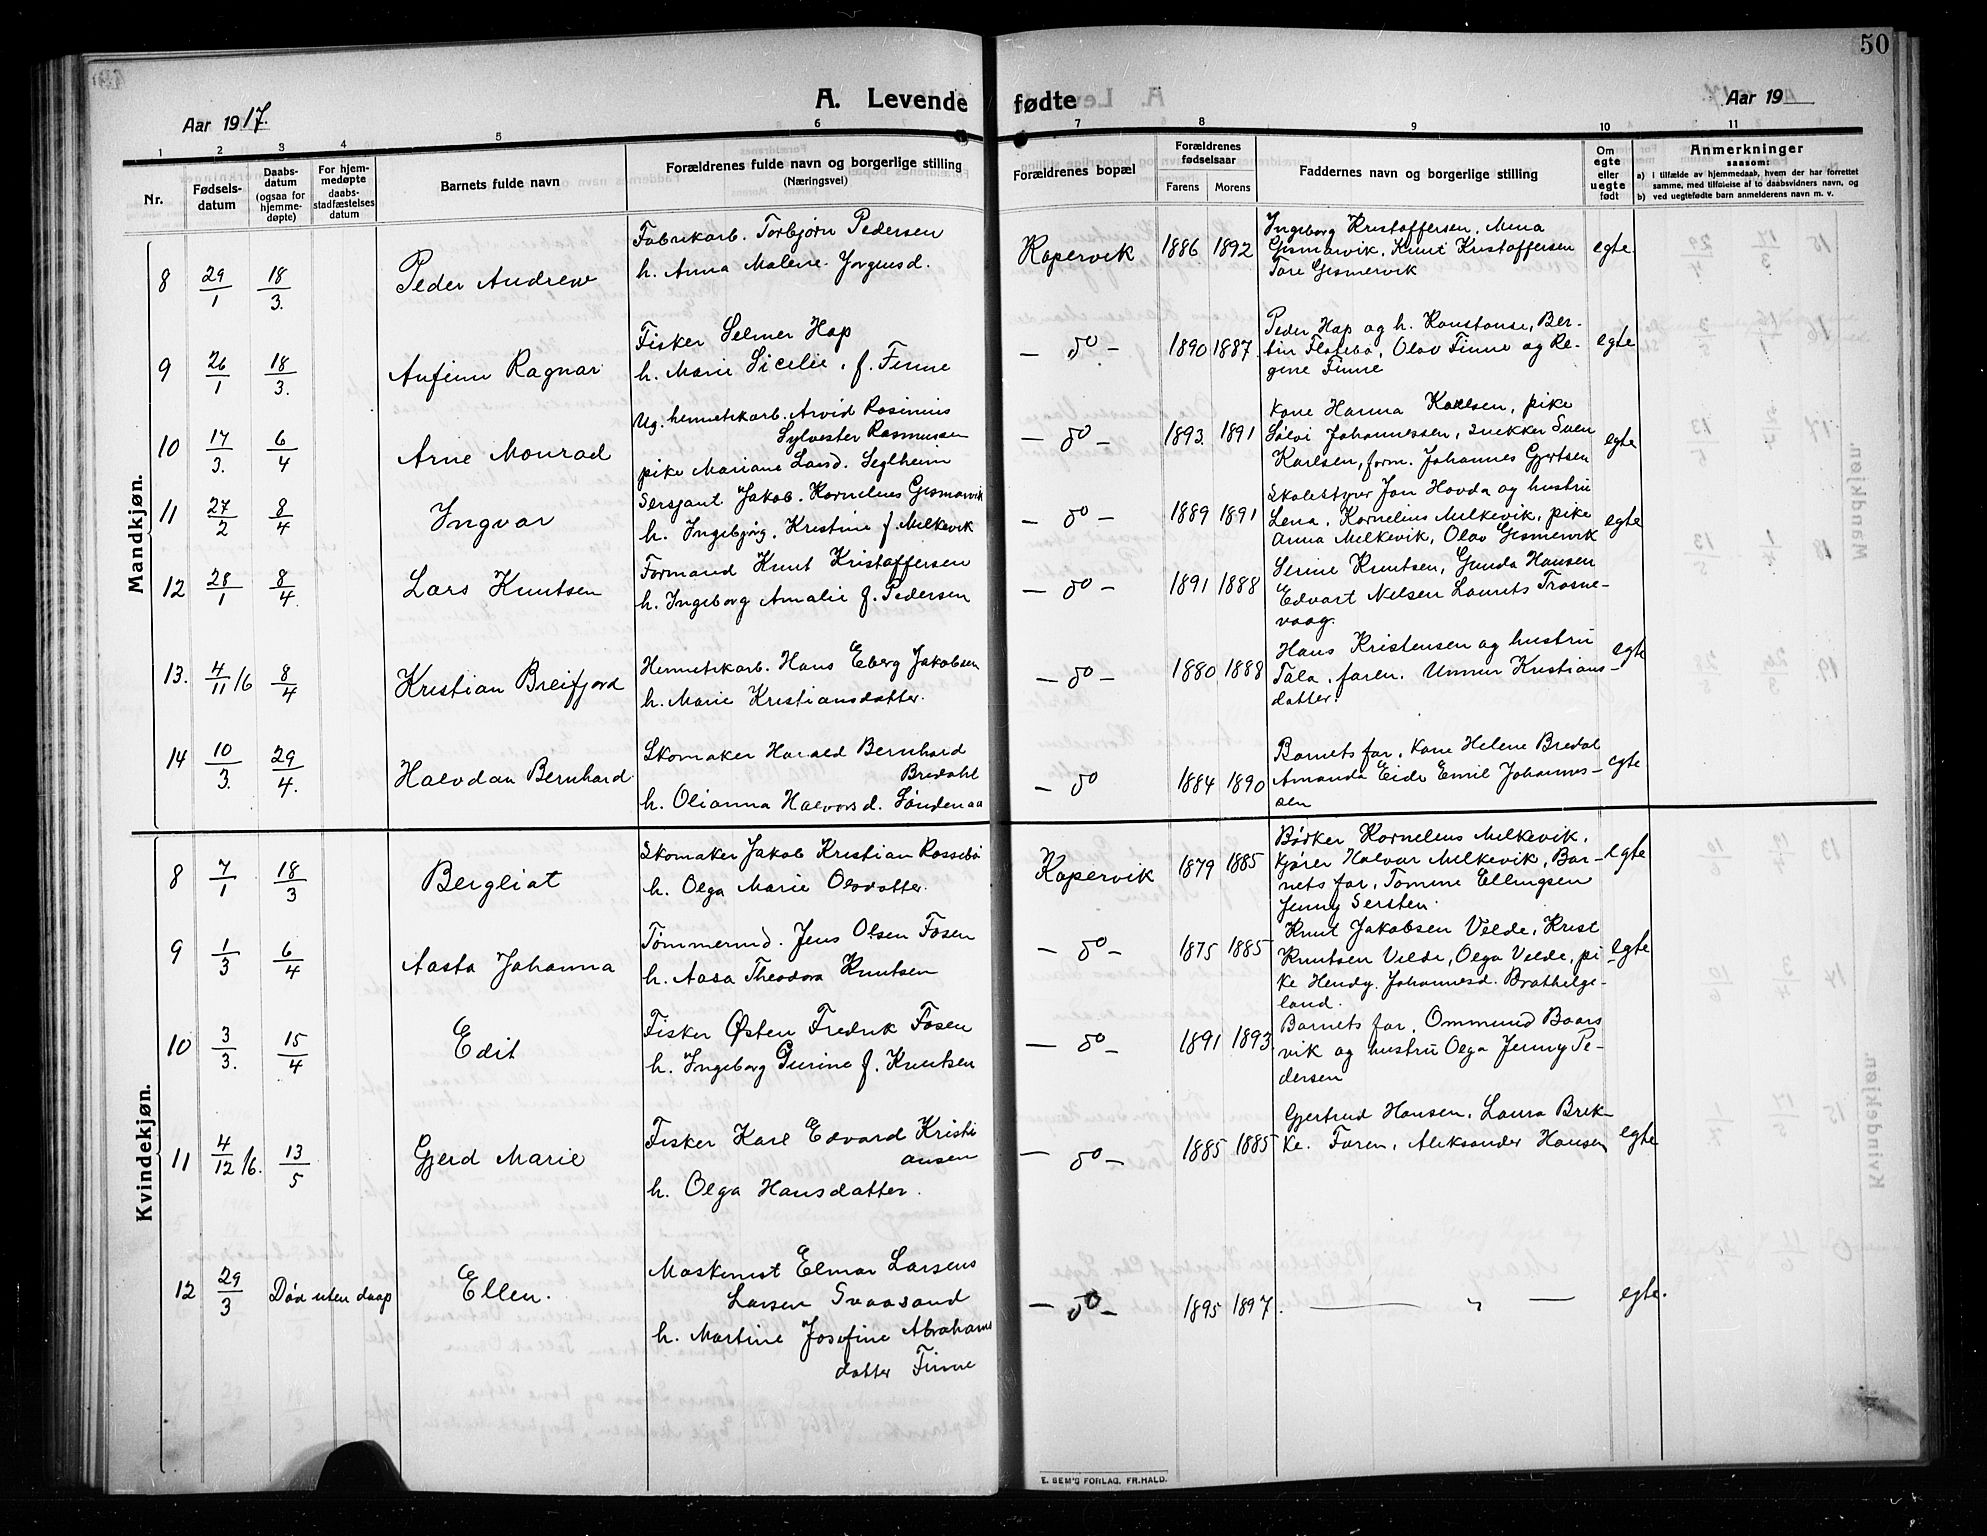 50
A. Levende fødte
Aar 1917.
Aar 19
1 2 3 4 5 6 7 8 9 10 11
Nr.
Fødsels-
datum
Daabs-
datum
(ogsaa for
hjemme-
døpte)
For hjem-
medøpte
daabs-
stadfæstelses
datum
Barnets fulde navn
Forældrenes fulde navn og borgerlige stilling
(Næringsvei)
Forældrenes bopæl
Forældrenes
fødselsaar
Farens Morens
Faddernes navn og borgerlige stilling
Om
egte
eller
uegte
født
Anmerkninger
saasom:
a) i tilfælde av hjemmedaab, hvem der har forrettet
samme, med tilføielse af to daabsvidners navn, og
b) ved uegtefødte barn anmelderens navn m. v.
Mandkjøn.
8 29/1 18/3. Peder Andreas
Fabrikarb. Torbjørn Pedersen
h. Anna Malene Jørgensd.
Kopervik 1886 1892
Ingeborg Kristoffersen, Mina
Gismarvik, Knut Kristoffersen
Tore Gismervik
egte
9 26/1 18/3. Anfinn Ragnar
Fisker Selmer Hop
h. Marie Sicilie, f. Finne
— do — 1890 1887
Peder Hop og h. Konstanse, Ber-
tin Flotebø, Olav Finne og Re-
gine Finne
egte
10 17/3. 6/4 Arne Monrad
Ug. hermetikarb. Arvid Rosinius
Sylvester Rasmussen
pike Mariane Larsd. Seglheim
— do — 1893. 1891
Kone Hanna Karlsen, pike
Sølvi Johannessen, snekker Sven
Karlsen, form. Johannes Gjertsen
egte
11 27/2 8/4 Ingvar
Sersjant Jakob Kornelius Gismarvik
h. Ingebjørg Kristine f. Milkevik
— do — 1889 1891
Skolestyrer Jon Hovda og hustru
Lena, Kornelius Milkevik, pike
Anna Milkevik, Olav Gismervik
egte
12 28/1 8/4. Lars Knutsen
Formand Knut Kristoffersen
h. Ingeborg Amalie f. Pedersen
— do — 1891 1888
Serine Knutsen, Gunda Hansen
Edvart Nilsen Laurits Trosne-
vaag.
13. 4/11 16 8/4 Kristian Breifjord
Hermetikarb. Hans Eberg Jakobsen
h. Marie Kristiansdatter.
— do — 1880 1888
Hans Kristensen og hustru
Tala, faren, Unnur Kristians-
datter.
egte
14 10/3. 29/4. Halvdan Bernhard
Skomaker Harald Bernhard
Bredahl
h. Olianna Halvorsd. Søndenaa
— do 1884 1890
Barnets far, Kone Helene Bredal
Amanda Eide Emil Johannes-
sen
egte
Kvindekjøn.
8 7/1 18/3 Bergliot
Skomaker Jakob Kristian Rossebø
h. Olga Marie Olsdatter.
Kopervik 1879 1885
Bødker Kornelius Milkevik,
kjører Halvar Milkevik, Bar-
nets far, Tomine Ellingsen
Jenny Sersten.
egte
9 1/3 6/4 Aasta Johanna
Tømmermd. Jens Olsen Fosen
h. Aasa Theodora Knutsen
— do — 1875 1885
Knut Jakobsen Velde, Krist
Knutsen Velde, Olga Velde, pi-
ke Hendy. Johannesd. Brathelge-
land.
egte
10 3/3. 15/4 Edit
Fisker Østen Fredrik Fosen
h. Ingeborg Gurine f. Knutsen
— do — 1891 1893
Barnets far, Ommund Baars
vik og hustru Olga Jenny Pe-
dersen
11 4/12 16. 13/5 Gjerd Marie
Fisker Karl Edvard Kristi
ansen
h. Olga Hansdatter.
— do — 1885 1885
Gjertrud Hansen, Laura Brek-
ke. Faren, Aleksander Hansen
egte
12 29/3 Død uten daap Ellen.
Maskinist Elmar Larsens
Larsen Svaasand
h. Martine Josefine Abrahams
datter Finne
— do — 1895 1897. — " —
egte.
E. SEM'S FORLAG, FR.HALD.